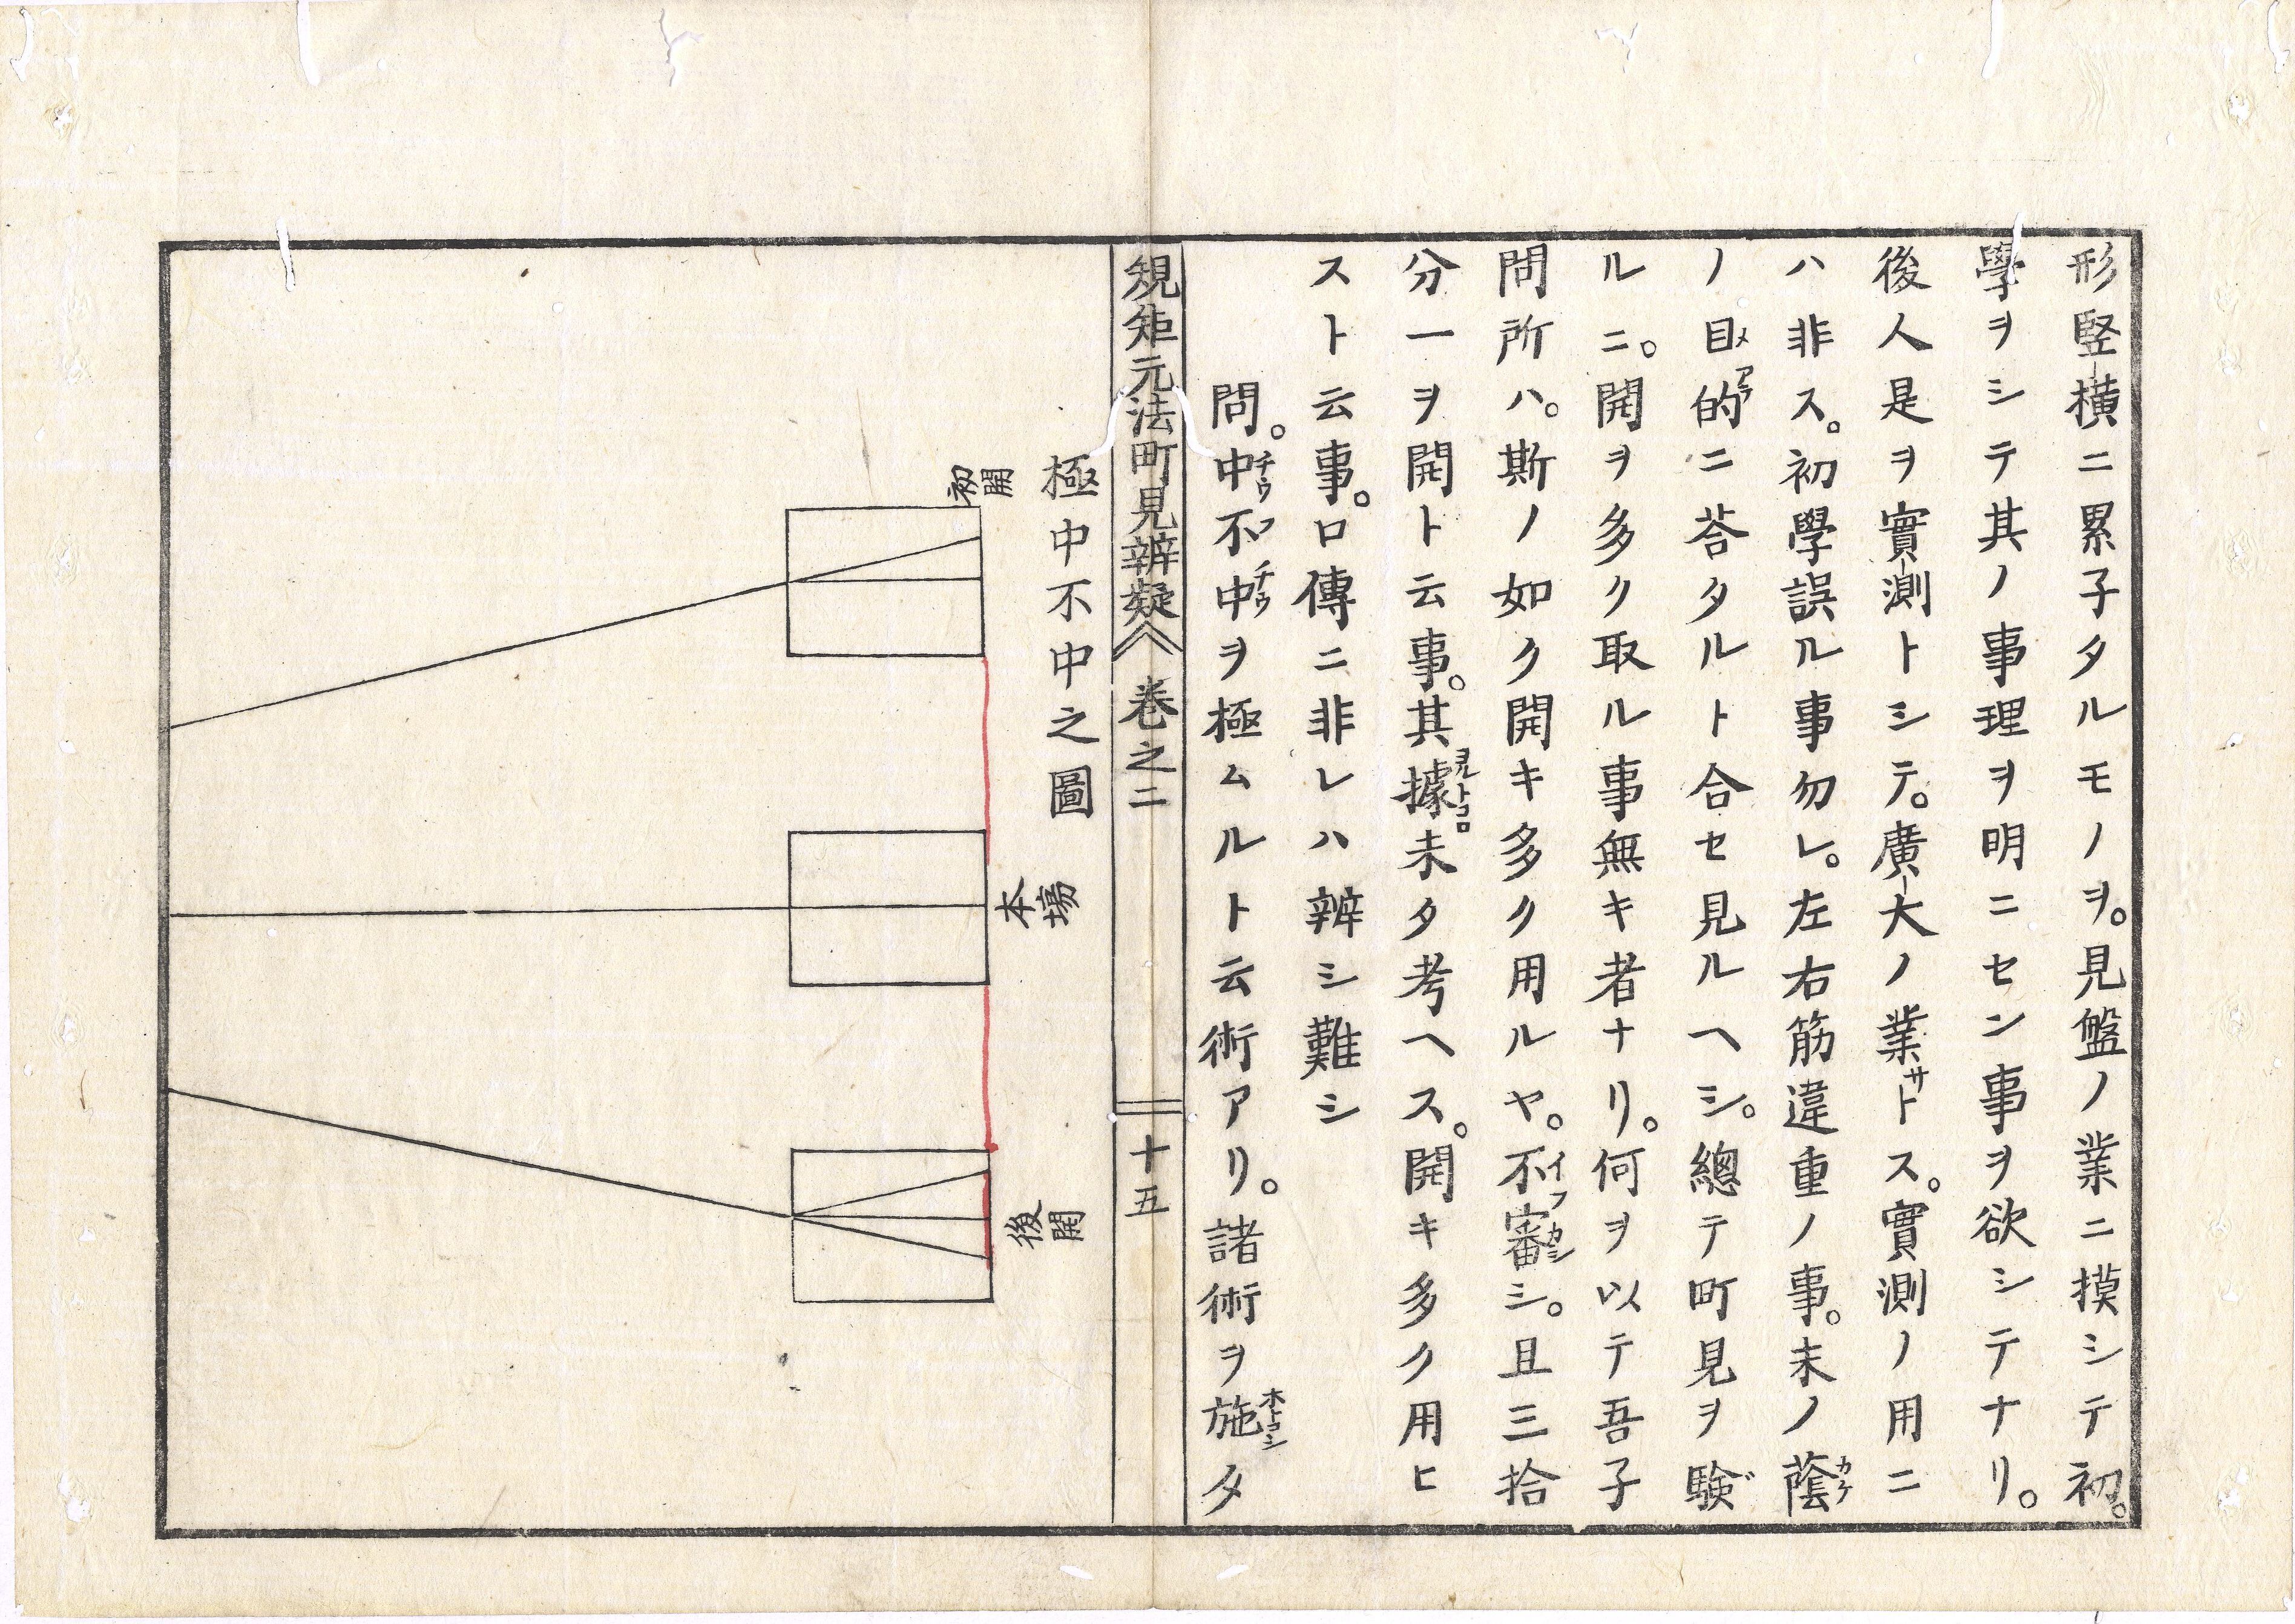 形竪横ニ累子タルモノヲ。見盤ノ業ニ摸シテ初。
學ヲシテ其ノ事理ヲ明ニセン事ヲ欲シテナリ。
後人是ヲ實測トシテ。廣大ノ業トス。實測ノ用ニ
ハ非ス。初學誤ル事勿レ。左右筋違重ノ事。末ノ蔭
ノ目的ニ荅タルト合セ見ルヘシ。總テ町見ヲ験
ルニ。開ヲ多ク取ル事無キ者ナリ。何ヲ以テ吾子
問所ハ。斯ノ如ク開キ多ク用ルヤ。不審シ。且三拾
分一ヲ開ト云事。其據未タ考ヘス。開キ多ク用ヒ
スト云事。口傳ニ非レハ辨シ難シ
問。中不中ヲ極ムルト云術アリ。諸術ヲ施タ
規矩元法町見辨疑 巻之二 十五
極中不中之圖
初開
本場
後開